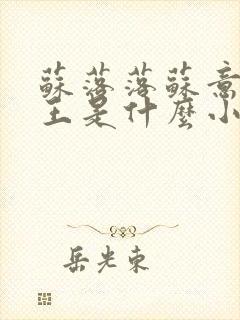 蘇落落蘇意
主是什麼小
岳光東